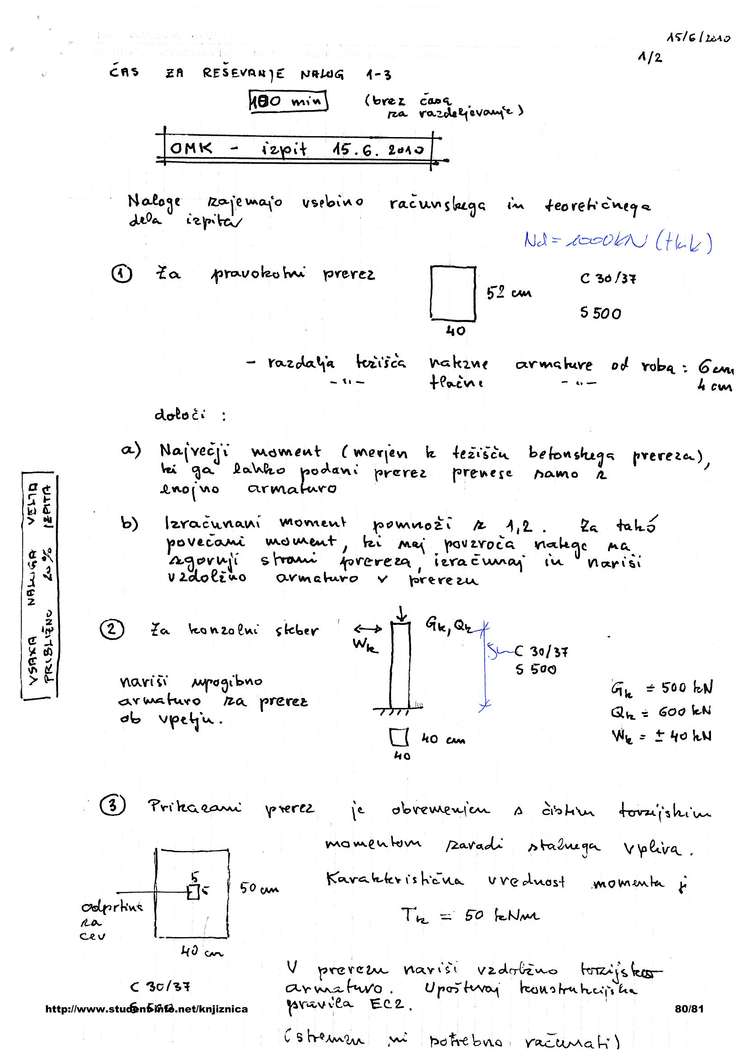 15/6/2010
1/2
ČAS ZA REŠEVANJE NALOG 1-3
180 min (brez časa
za razdeljevanje)
OMK - izpit 15.6.2010
Naloge zajemajo vsebino računskega in teoretičnega
dela izpita
Nd = 1000kN (tlak)
① Za pravokotni prerez
52 cm
40
C 30/37
S 500
- razdalja težišča natezne armature od roba : 6 cm
-"- tlačne -"- 4 cm
določi :
a) Največji moment (merjen k težišču betonskega prereza),
ki ga lahko podani prerez prenese samo z
enojno armaturo
b) Izračunani moment pomnoži z 1,2. Za tako
povečani moment, ki naj povzroča natege na
zgornji strani prereza, izračunaj in nariši
vzdolžno armaturo v prerezu
VSAKA NALOGA VELJA
PRIBLIŽNO 20% IZPITA
② Za konzolni steber
Wk
Gk, Qk
5m
C 30/37
S 500
nariši upogibno
armaturo za prerez
ob vpetju.
40 cm
40
Gk = 500 kN
Qk = 600 kN
Wk = ± 40 kN
③ Prikazani prerez je obremenjen s čistim torzijskim
momentom zaradi stalnega vpliva.
Karakteristična vrednost momenta je
Tk = 50 kNm
5
5
50 cm
odprtina
za
cev
40 cm
C 30/37
S 500
V prerezu nariši vzdolžno torzijsko
armaturo. Upoštevaj konstrukcijska
pravila EC2.
(stremen ni potrebno računati)
http://www.student-info.net/knjiznica
80/81